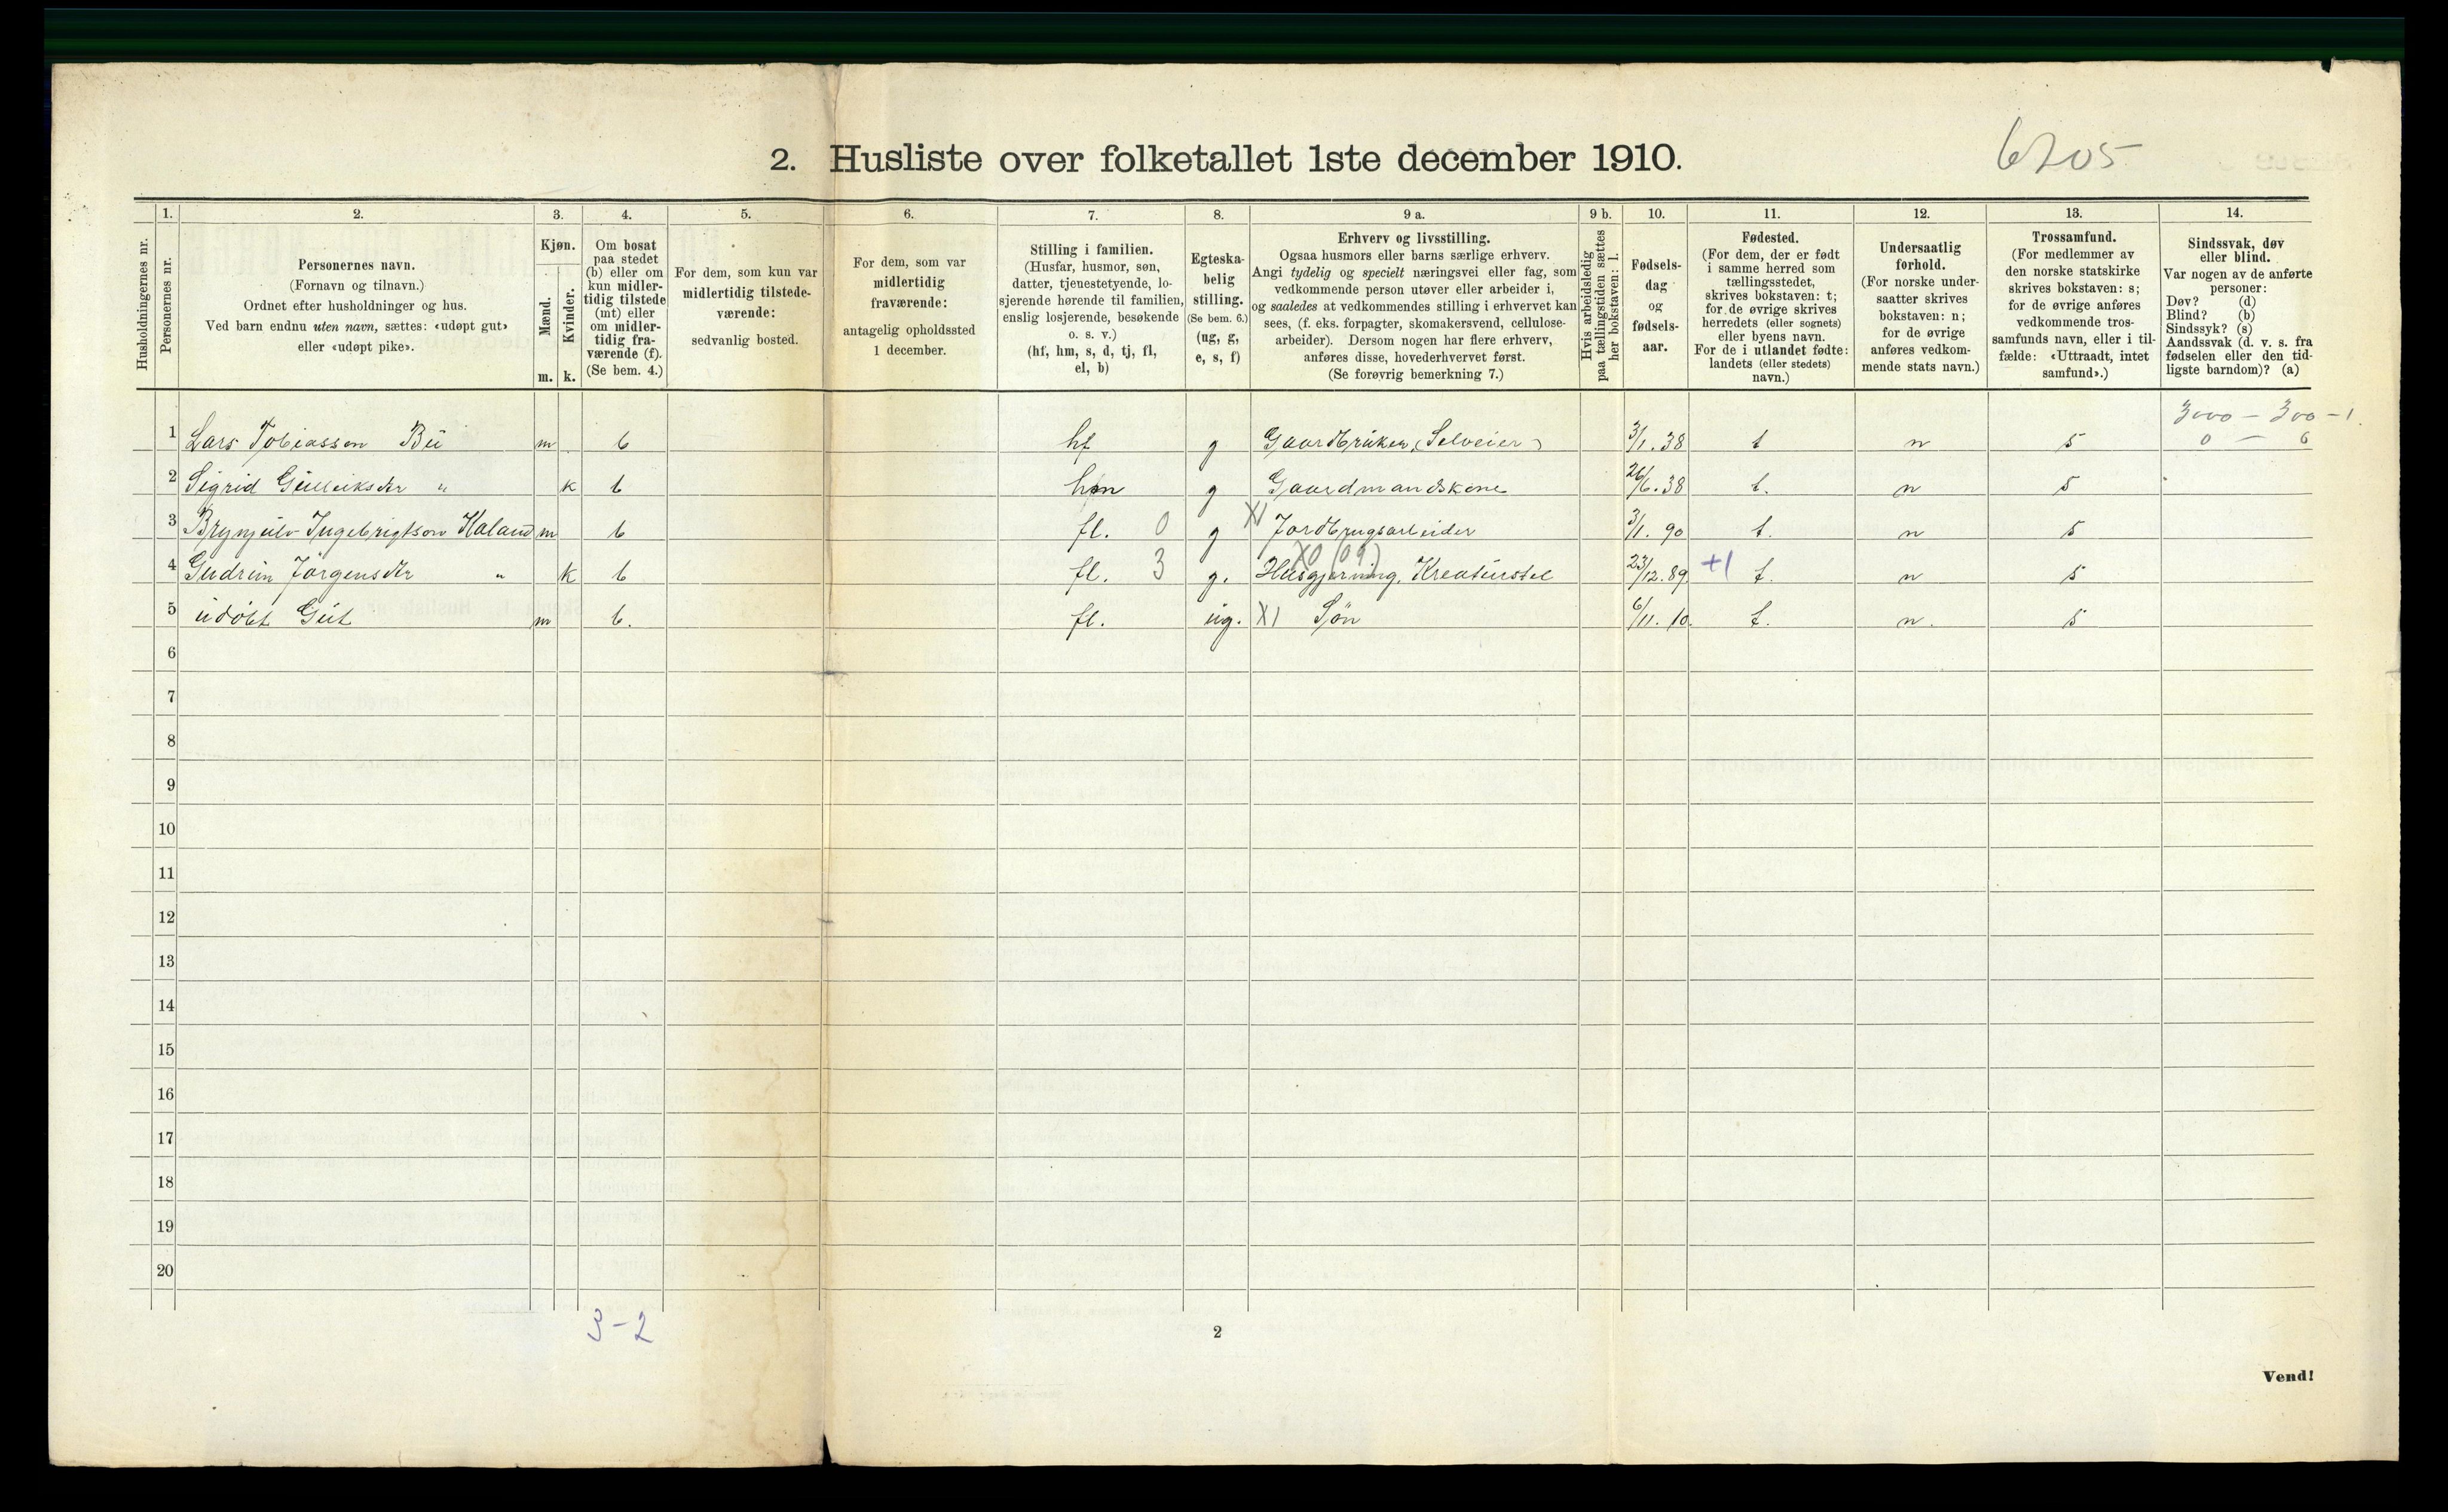 2. Husliste over folketallet 1ste december 1910.
6205
Husholdningernes nr.
1.
Personernes nr.
2.
Personernes navn.
(Fornavn og tilnavn.)
Ordnet efter husholdninger og hus.
Ved barn endnu uten navn, sættes: «udøpt gut»
eller «udøpt pike».
3.
Kjøn.
Mænd.
Kvinder.
m. k.
4.
Om bosat
paa stedet
(b) eller om
kun midler-
tidig tilstede
(mt) eller
om midler-
tidig fra-
værende (f).
(Se bem. 4.)
5.
For dem, som kun var
midlertidig tilstede-
værende:
sedvanlig bosted.
6.
For dem, som var
midlertidig
fraværende:
antagelig opholdssted
1 december.
7.
Stilling i familien.
(Husfar, husmor, søn,
datter, tjenestetyende, lo-
sjerende hørende til familien,
enslig losjerende, besøkende
o. s. v.)
(hf, hm, s, d, tj, fl,
el, b)
8.
Egteska-
belig
stilling.
(Se bem. 6.)
(ug, g,
e, s, f)
9 a.
Erhverv og livsstilling.
Ogsaa husmors eller barns særlige erhverv.
Angi tydelig og specielt næringsvei eller fag, som
vedkommende person utøver eller arbeider i,
og saaledes at vedkommendes stilling i erhvervet kan
sees, (f. eks. forpagter, skomakersvend, cellulose-
arbeider). Dersom nogen har flere erhverv,
anføres disse, hovederhvervet først.
(Se forøvrig bemerkning 7.)
9 b.
Hvis arbeidsledig
paa tællingstiden sættes
her bokstaven: l.
10.
Fødsels-
dag
og
fødsels-
aar.
11.
Fødested.
(For dem, der er født
i samme herred som
tællingsstedet,
skrives bokstaven: t;
for de øvrige skrives
herredets (eller sognets)
eller byens navn.
For de i utlandet fødte:
landets (eller stedets)
navn.)
12.
Undersaatlig
forhold.
(For norske under-
saatter skrives
bokstaven: n;
for de øvrige
anføres vedkom-
mende stats navn.)
13.
Trossamfund.
(For medlemmer av
den norske statskirke
skrives bokstaven: s;
for de øvrige anføres
vedkommende tros-
samfunds navn, eller i til-
fælde: «Uttraadt, intet
samfund».)
14.
Sindssvak, døv
eller blind.
Var nogen av de anførte
personer:
Døv? (d)
Blind? (b)
Sindssyk? (s)
Aandssvak (d. v. s. fra
fødselen eller den tid-
ligste barndom)? (a)
3000 – 300 – 1
0 – 6
1 Lars Tobiassen Bü m b hf g Gaardbruker, (Selveier) 3/1. 38 t n s
2 Sigrid Gulleiksdtr " k b hm g Gaardmandskone 26/6. 38 t. n s
3 Brynjulv Ingebrigtson Haland m b fl. 0 g XI Jordbrugsarbeider 3/1. 90 t. n s
4 Gudrun Jörgensdtr " k b fl. 3 g. X0 (09) Husgjerning, Kreaturstel 23/12. 89. +1 t. n s
5 udöbt Gut m b. fl. ug. XI Sön 6/11. 10. t. n. s
6
7
8
9
10
11
12
13
14
15
16
17
18
19
20
3-2
2
Vend!